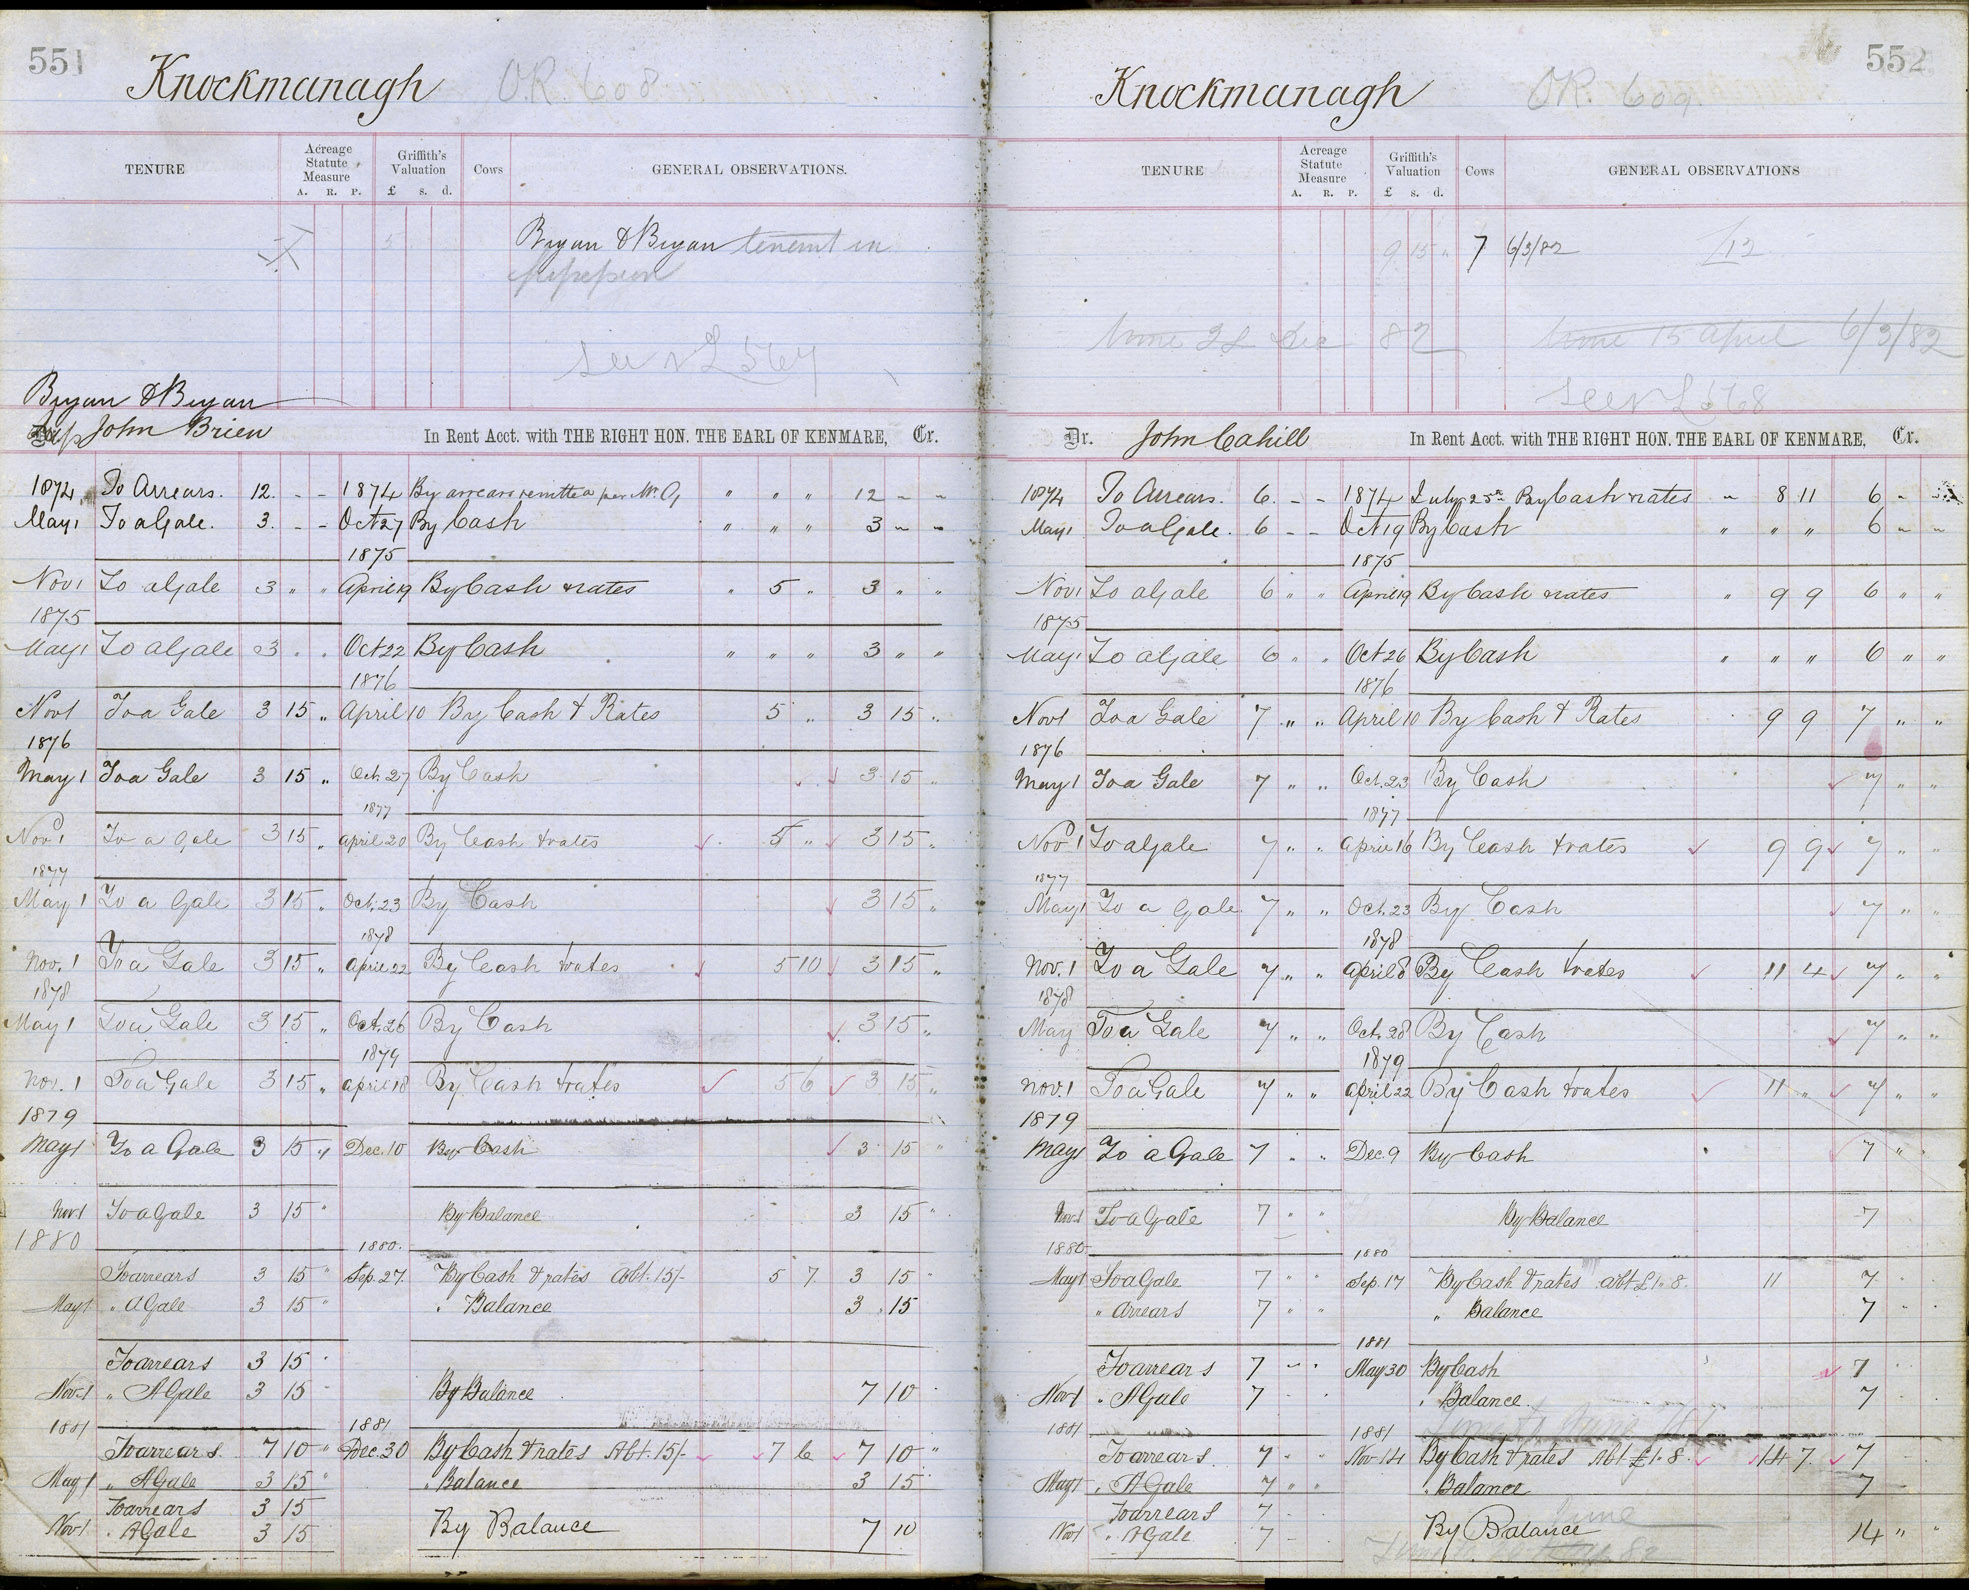 551
Knockmanagh O.R. 608
TENURE Acreage Statute Measure A. R. P. Griffith's Valuation £ s. d. Cows GENERAL OBSERVATIONS.
5 Bryan & Bryan tenent in
see N L 567
Bryan & Bryan
John Brien In Rent Acct. with THE RIGHT HON. THE EARL OF KENMARE, Cr.
1874 To Arrears. 12. - - 1874 By arrears remitted per Mr. G, " " " 12 - -
May 1 To a Gale. 3. - - Oct 27 By Cash " " " 3 - -
1875
Nov 1 To a Gale 3 " " April 19 By Cash & rates " 5 " 3 " "
1875
May 1 To a Gale 3 . . Oct 22 By Cash " " " 3 " "
1876
Nov 1 To a Gale 3 15 " April 10 By Cash & Rates 5 " 3 15 "
1876
May 1 To a Gale 3 15 " Oct. 27 By Cash 3 15 "
1877
Nov 1 To a Gale 3 15 " April 20 By Cash & rates 5 " 3 15 "
1877
May 1 To a Gale 3 15 " Oct. 23 By Cash 3 15 "
1878
Nov. 1 To a Gale 3 15 " April 22 By Cash & rates 5 10 3 15 "
1878
May 1 To a Gale 3 15 " Oct. 26 By Cash 3 15 "
1879
Nov. 1 To a Gale 3 15 " April 18 By Cash & rates 5 6 3 15 "
1879
May 1 To a Gale 3 15 " Dec. 10 By Cash 3 15 "
Nov 1 To a Gale 3 15 " By Balance 3 15 "
1880 1880.
To arrears 3 15 " Sep. 27 By Cash & rates Abt. 15/- 5 7 3 15 "
May 1 " A Gale 3 15 " " Balance 3 15
To arrears 3 15 "
Nov. 1 " A Gale 3 15 " By Balance 7 10 "
1881 1881
To arrears. 7 10 " Dec. 30 By Cash & rates Abt. 15/- 7 6 7 10 "
May 1 " A Gale 3 15 " " Balance 3 15
To arrears 3 15
Nov 1 " A Gale 3 15 By Balance 7 10
552
Knockmanagh O.R. 609.
TENURE Acreage Statute Measure A. R. P. Griffith's Valuation £ s. d. Cows GENERAL OBSERVATIONS
9 15 " 7 6/3/82 £12
time 21 Dec 82 time 15 April 6/3/82
see N L 568
Dr. John Cahill In Rent Acct. with THE RIGHT HON. THE EARL OF KENMARE, Cr.
1874 To Arrears. 6. - - 1874 July 25th By Cash & rates - 8 11 6 - -
May 1 To a Gale. 6 - - Oct 19 By Cash " " " 6 - -
1875
Nov 1 To a Gale 6 " " April 19 By Cash & rates " 9 9 6 " "
1875
May 1 To a Gale 6 " " Oct 26 By Cash " " " 6 " "
1876
Nov 1 To a Gale 7 " " April 10 By Cash & Rates 9 9 7 " "
1876
May 1 To a Gale 7 " " Oct. 23 By Cash 7 " "
1877
Nov 1 To a Gale 7 " " April 16 By Cash & rates 9 9 7 " "
1877
May 1 To a Gale 7 " " Oct. 23 By Cash 7 " "
1878
Nov. 1 To a Gale 7 " " April 8 By Cash & rates 11 4 7 " "
1878
May To a Gale 7 " " Oct. 28 By Cash 7 " "
1879
Nov. 1 To a Gale 7 " " April 22 By Cash & rates 11 " 7 " "
1879
May 1 To a Gale 7 " " Dec. 9 By Cash 7 "
Nov. 1 To a Gale 7 " " By Balance 7
1880 1880
May 1 To a Gale 7 " " Sep. 17 By Cash & rates Abt £1.8. 11 7
" Arrears 7 " " " Balance 7
1881
To arrears 7 - " May 30 By Cash 7
Nov 1 " A Gale 7 " Balance 7
1881 1881
To arrears. 7 " Nov. 14 By Cash & rates Abt. £1.8. 14 7. 7
May 1 " A Gale 7 " " " Balance 7
To arrears 7 -
Nov 1 " A Gale 7 - By Balance 14 " "